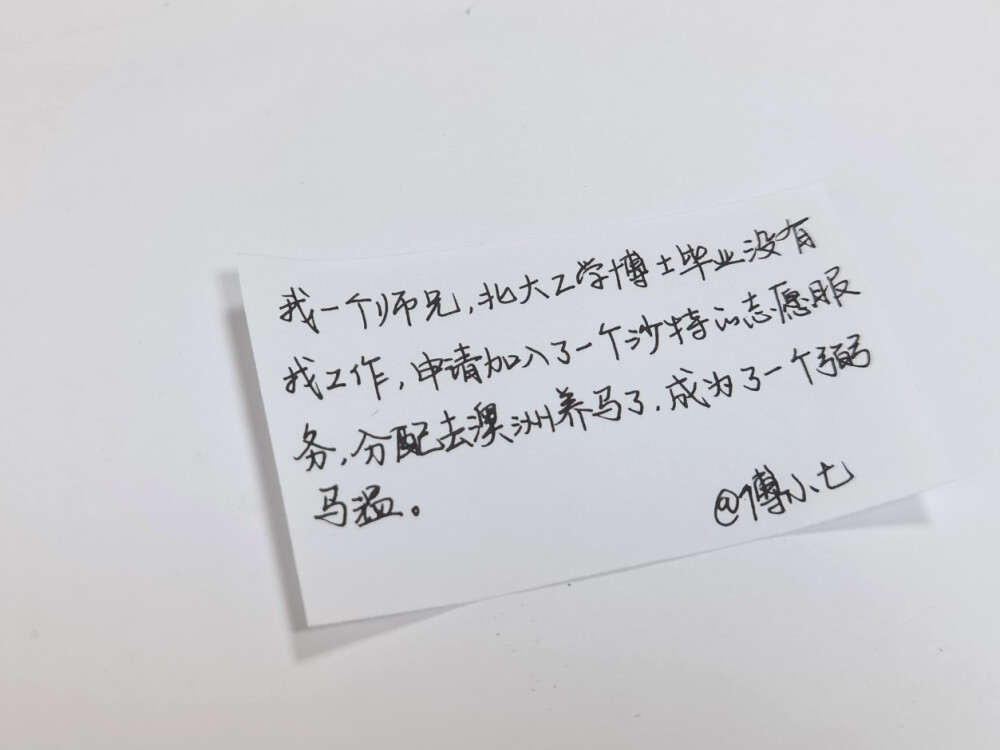 我一个师兄,北大工学博士毕业没有
找工作,申请加入了一个沙特的志愿服
务,分配去澳洲养马了,成为了一个弼
马温。
@博小七